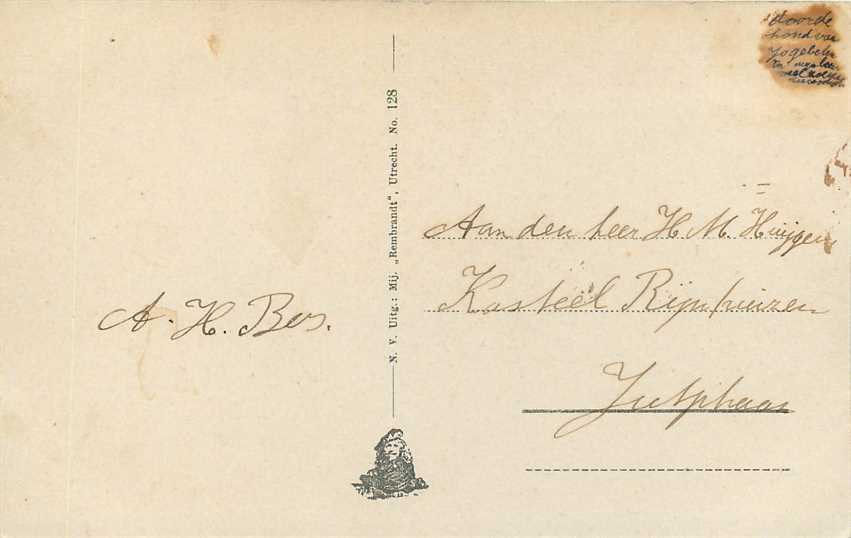 A. H. Bos.
N. V. Uitg.: Mij. „Rembrandt", Utrecht. No. 128
Aan den heer H M Huijgens
Kasteel Rijnhuizen
Jutphaas